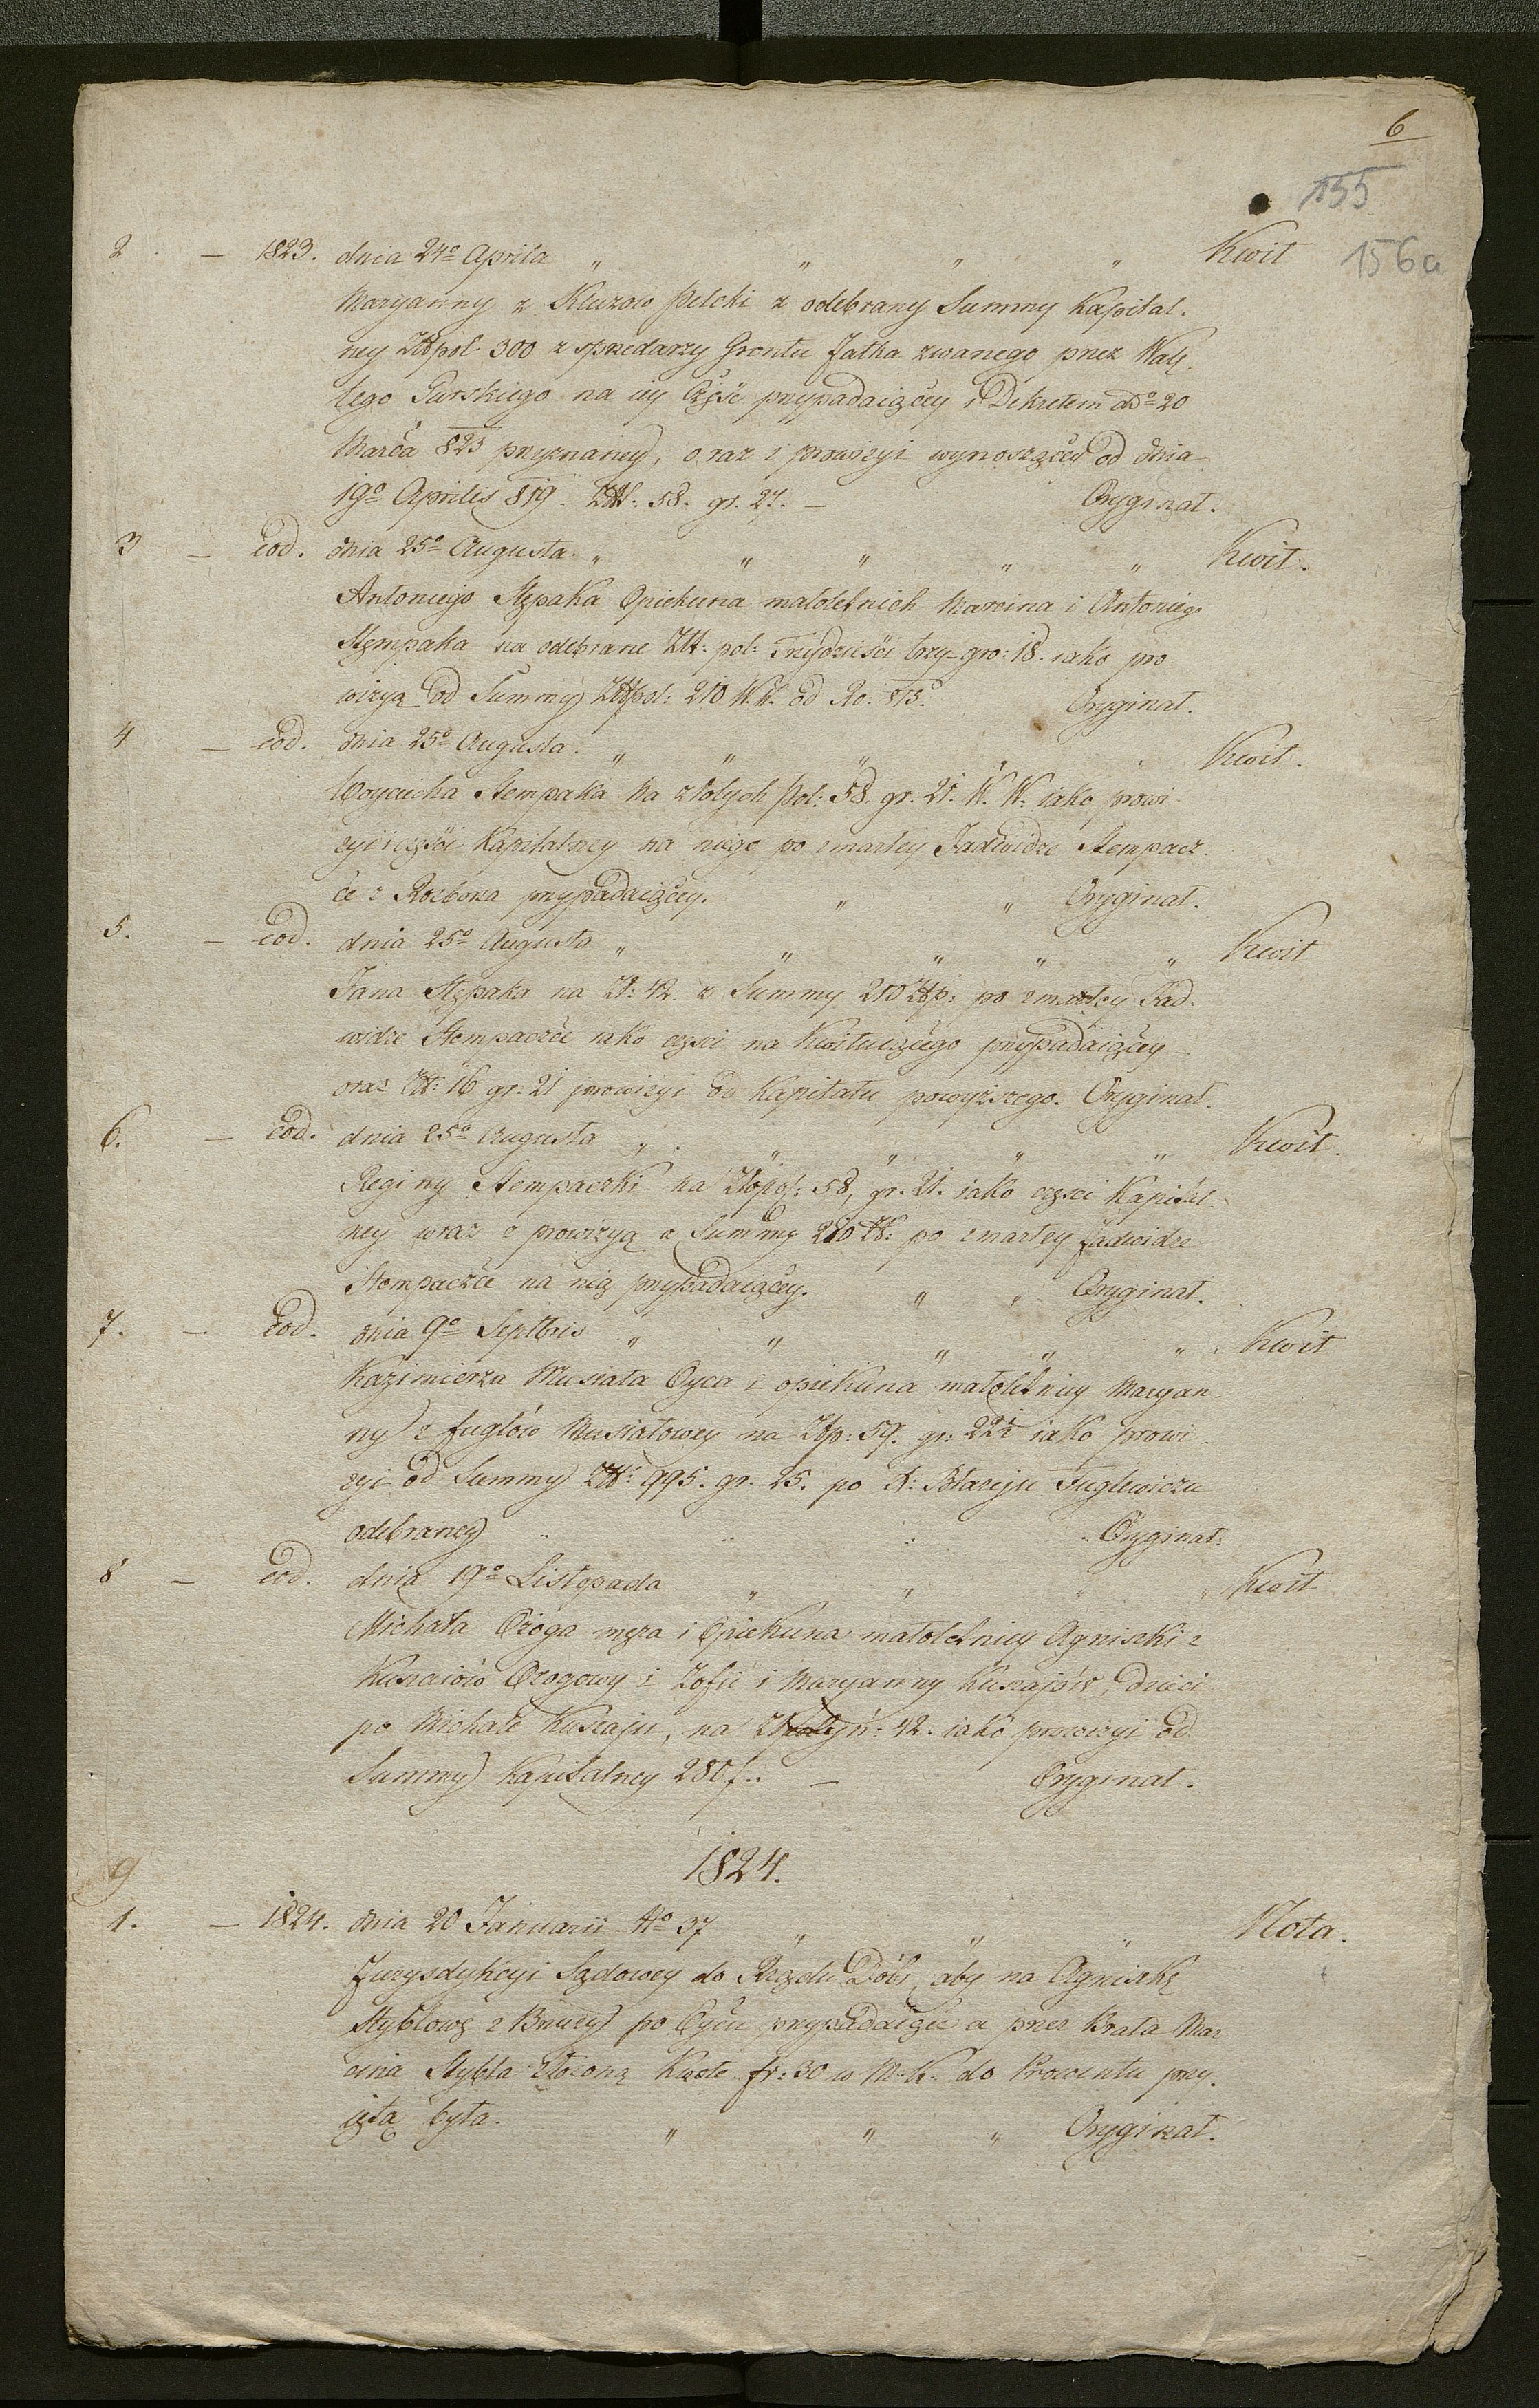 6
155
156a
2 — 1823. dnia 24º Aprila " " " " Kwit
Maryanny z Kluzow Pelcki z odebraney Summy Kapital-
ney Złłpol. 300 z sprzedarzy Grontu Jatka zwanego przez Walę
tego Gurskiego na iey Część przypadaiącey i Dekretem ddº 20
Marca 823 przyznaney, oraz i prowizyi wynoszącey od dnia
19º Aprilis 819. Złł: 58. gr. 27. — Oryginał.
3 — eod. dnia 25º Augusta " " " " " Kwit.
Antoniego Stępaka Opiekuna małoletnich Marcina i Antoniego
Stęmpaka na odebrane Złł: pol: Trzydzieści trzy gro: 18. iako pro
wizyą od Summy Złłpol: 210 W.W. od Ro: 813. Oryginał.
4 — eod. dnia 25º Augusta. " " " " Kwit.
Woyciecha Stempaka na złotych Pol: 58. gr. 21. W. W. iako prowi-
zyi i części Kapitalney na niego po zmarłey Jadwidze Stempacz-
ce z Rozbora przypadaiącey. " " Oryginał.
5. — eod. dnia 25º Augusta " " " " " Kwit
Jana Stępaka na Zł: 42. z Summy 210 Złp: po zmarłey Jad-
widze Stempaczce iako częsci na Kwituiącego przypadaiącey
oraz Złł: 16 gr: 21 prowizyi od Kapitału powyższego. Oryginał.
6. — eod. dnia 25º Augusta " " " " " Kwit.
Reginy Stempaczki na Złopol: 58, gr. 21. iako częsci Kapital-
ney wraz z prowizyą z Summy 210 Zł: po zmarłey Jadwidze
Stempaczce na nią przypadaiącey. " " Oryginał.
7. — eod. dnia 9º Septbris " " " " " Kwit
Kazimierza Musiała Oyca i opiekuna małoletniey Maryan-
ny z Fuglów Musiałowey na Złp: 59. gr: 22½ iako prowi-
zyi od Summy Złł: 995. gr. 25. po Błażeju Fuglewiczu
odebraney " " " " Oryginał.
8 — eod. dnia 19º Listopada " " " " Kwit
Michała Ożoga męża i Opiekuna małoletniey Agniszki z
Kuszaiów Ożogowy i Zofii i Maryanny Kuszajów, dzieci
po Michale Kuszaju, na 42. iako prowizyi od
Summy Kapitalney 280 f.. — Oryginał.
1824.
9
1. — 1824. dnia 20 Januarii Nº 37 " " " Nota.
Jurysdykcyi Sądowey do Rządu Dóbr, aby na Agniszkę
Styblową z po Oycu przypadaiące a przez Brata Mar
cina Stybla złożoną Kwote fr: 30 w M. K. do Prowentu przy-
iętą była. " " " Oryginał.